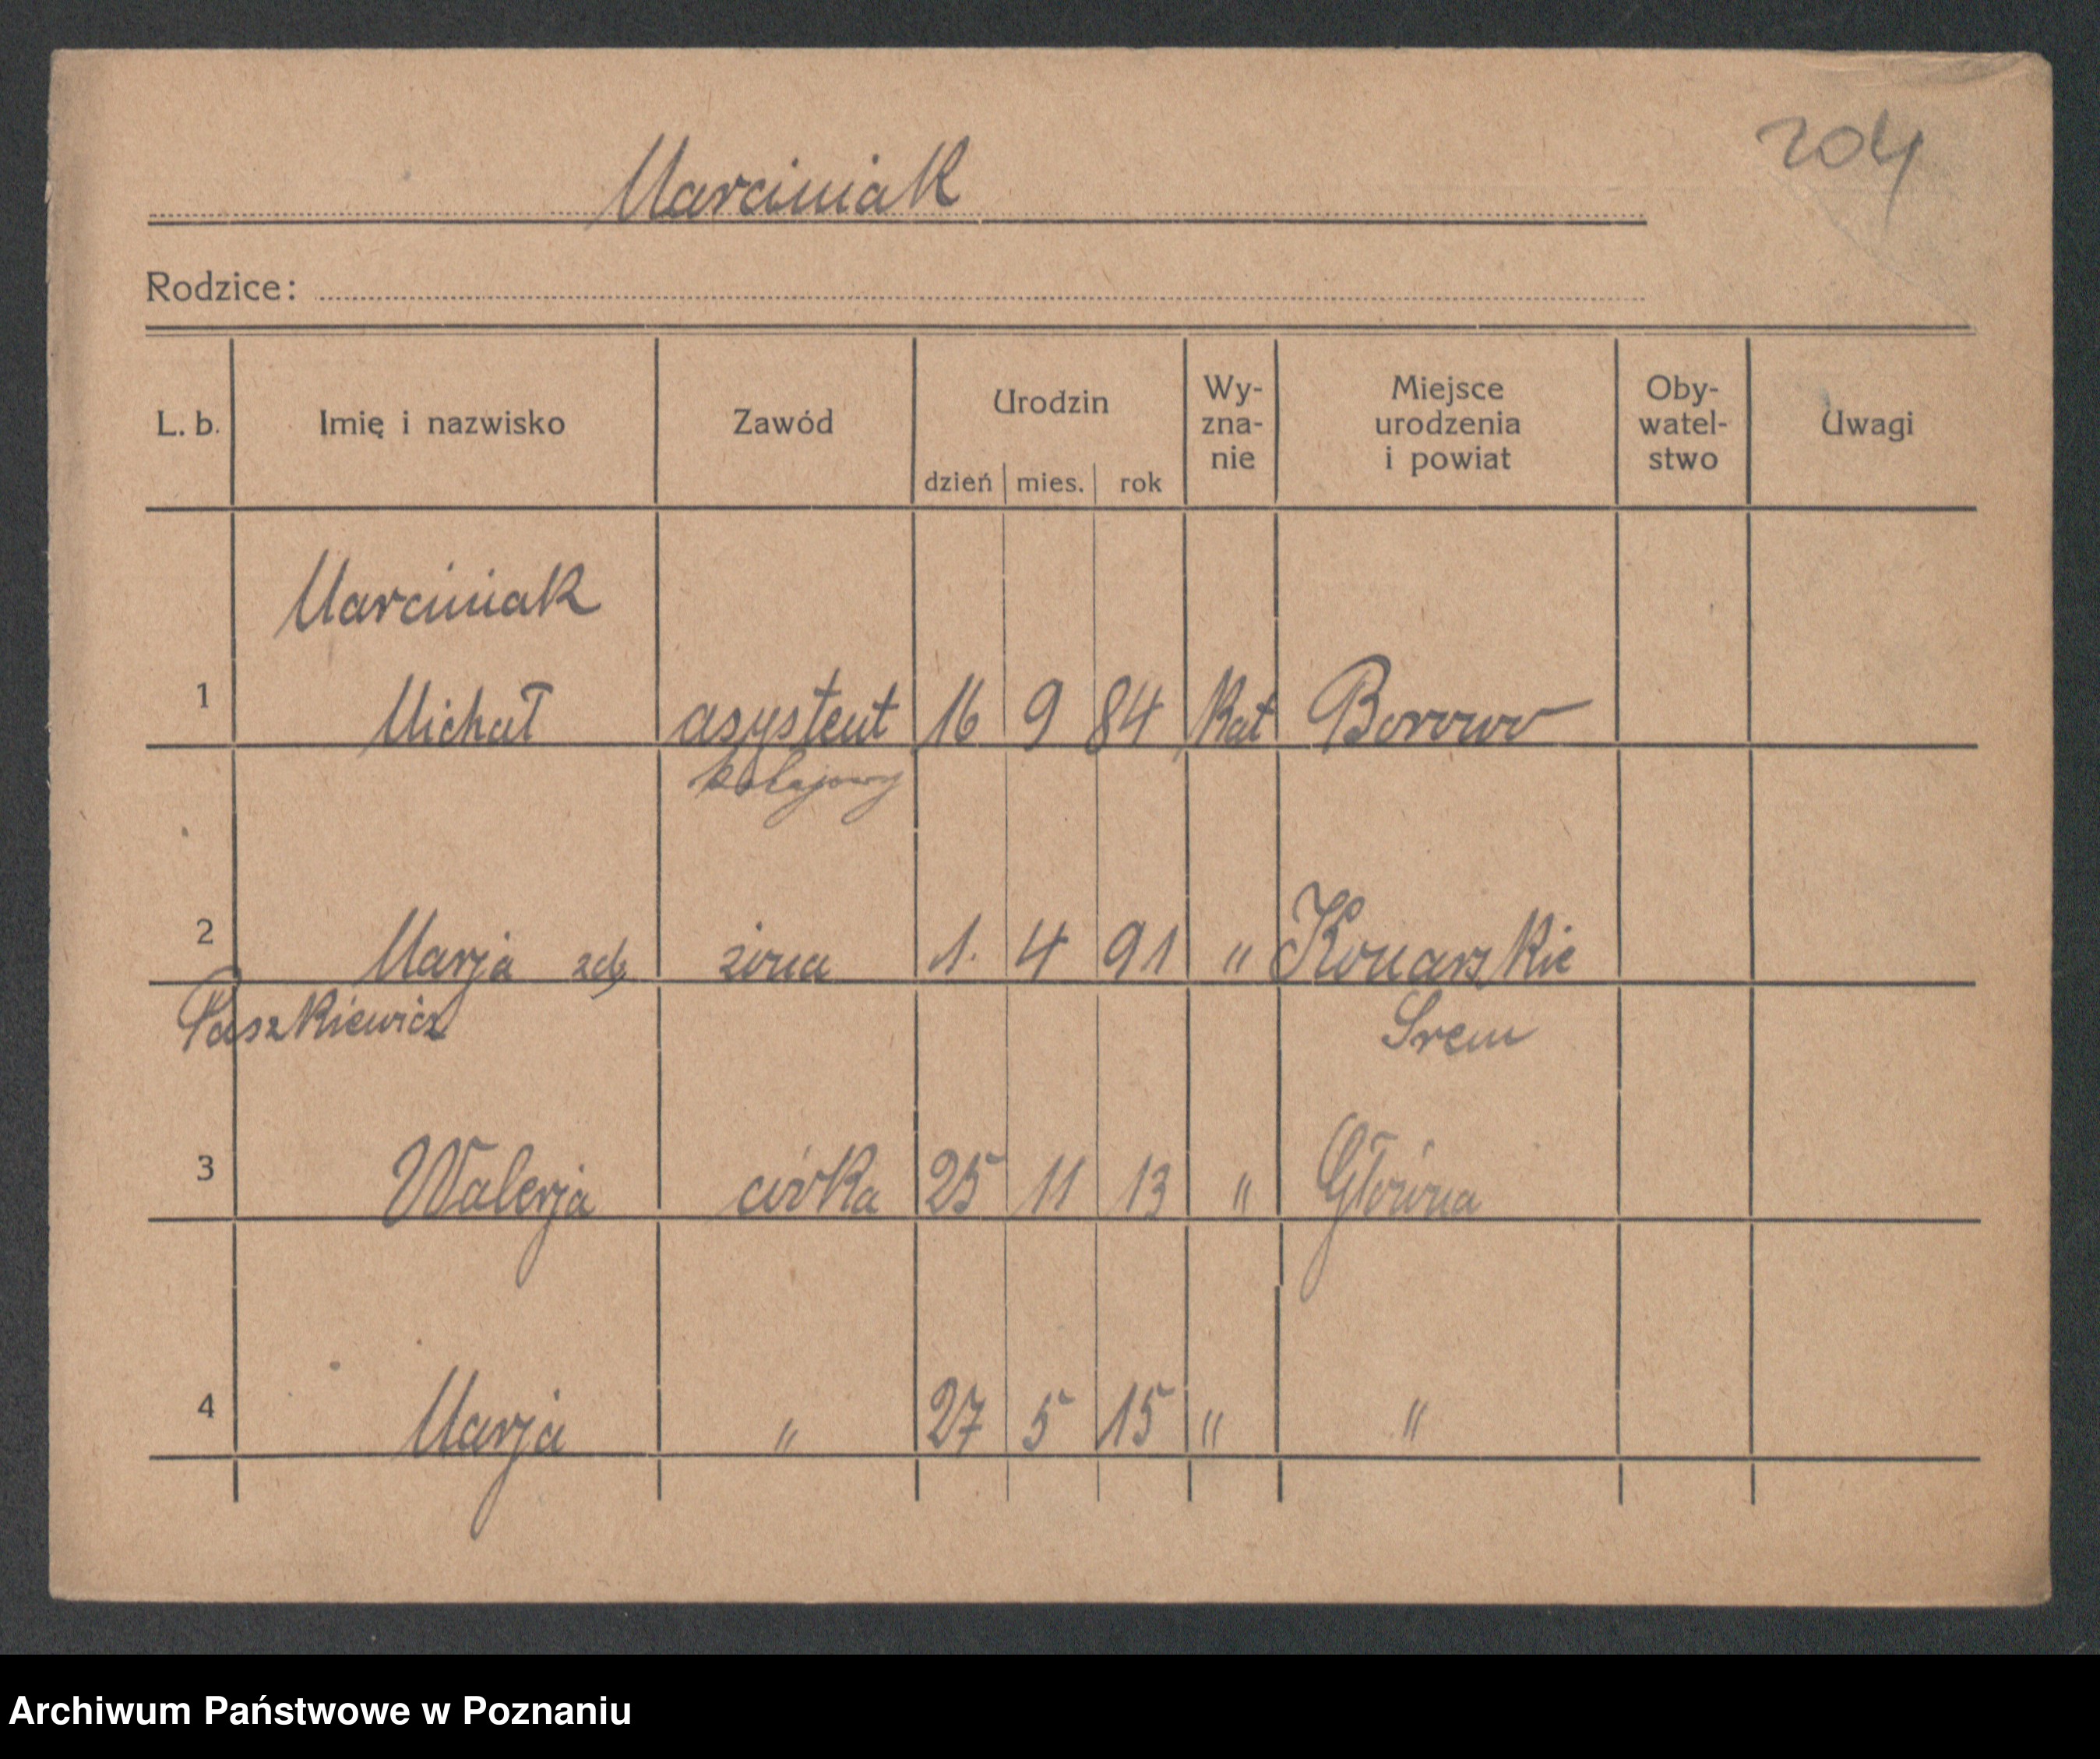 204
Marciniak
Rodzice:
L. b. Imię i nazwisko Zawód Urodzin dzień mies. rok Wy-zna-nie Miejsce urodzenia i powiat Oby-watel-stwo Uwagi
Marciniak
1 Michał asystent 16 9 84 Kat Borowo
kolejowy
2 Marja zd. żona 1. 4 91 " Konarskie
Paszkiewicz Srem
3 Walerja córka 25 11 13 " Główna
4 Marja " 27 5 15 " "
Archiwum Państwowe w Poznaniu